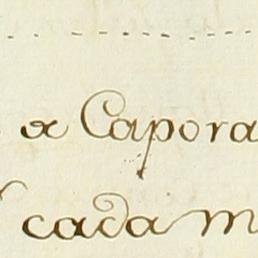 a Capora
cada m